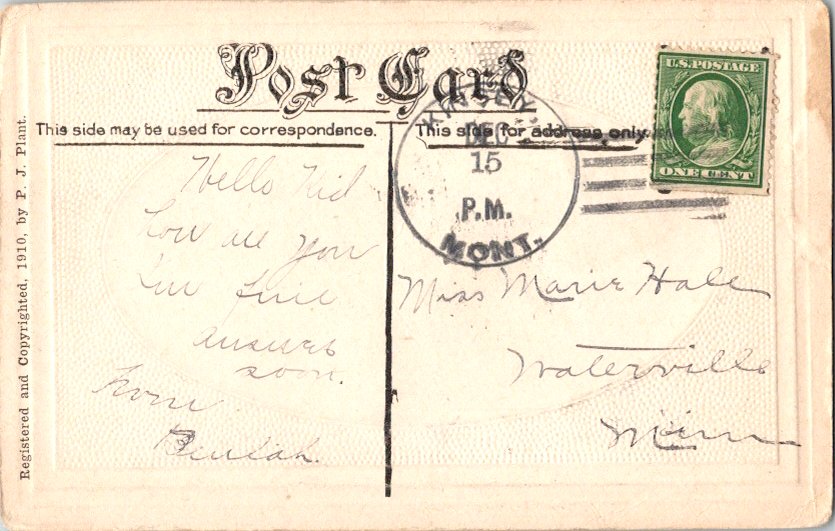 Post Card
This side may be used for correspondence.
This side for address only.
U.S. POSTAGE
ONE CENT
KINSEY
DEC
15
P.M.
MONT.
Hello Kid
how are you
I'm fine
answer
soon.
From
Beulah.
Miss Marie Hale
Waterville
Minn
Registered and Copyrighted, 1910, by P. J. Plant.